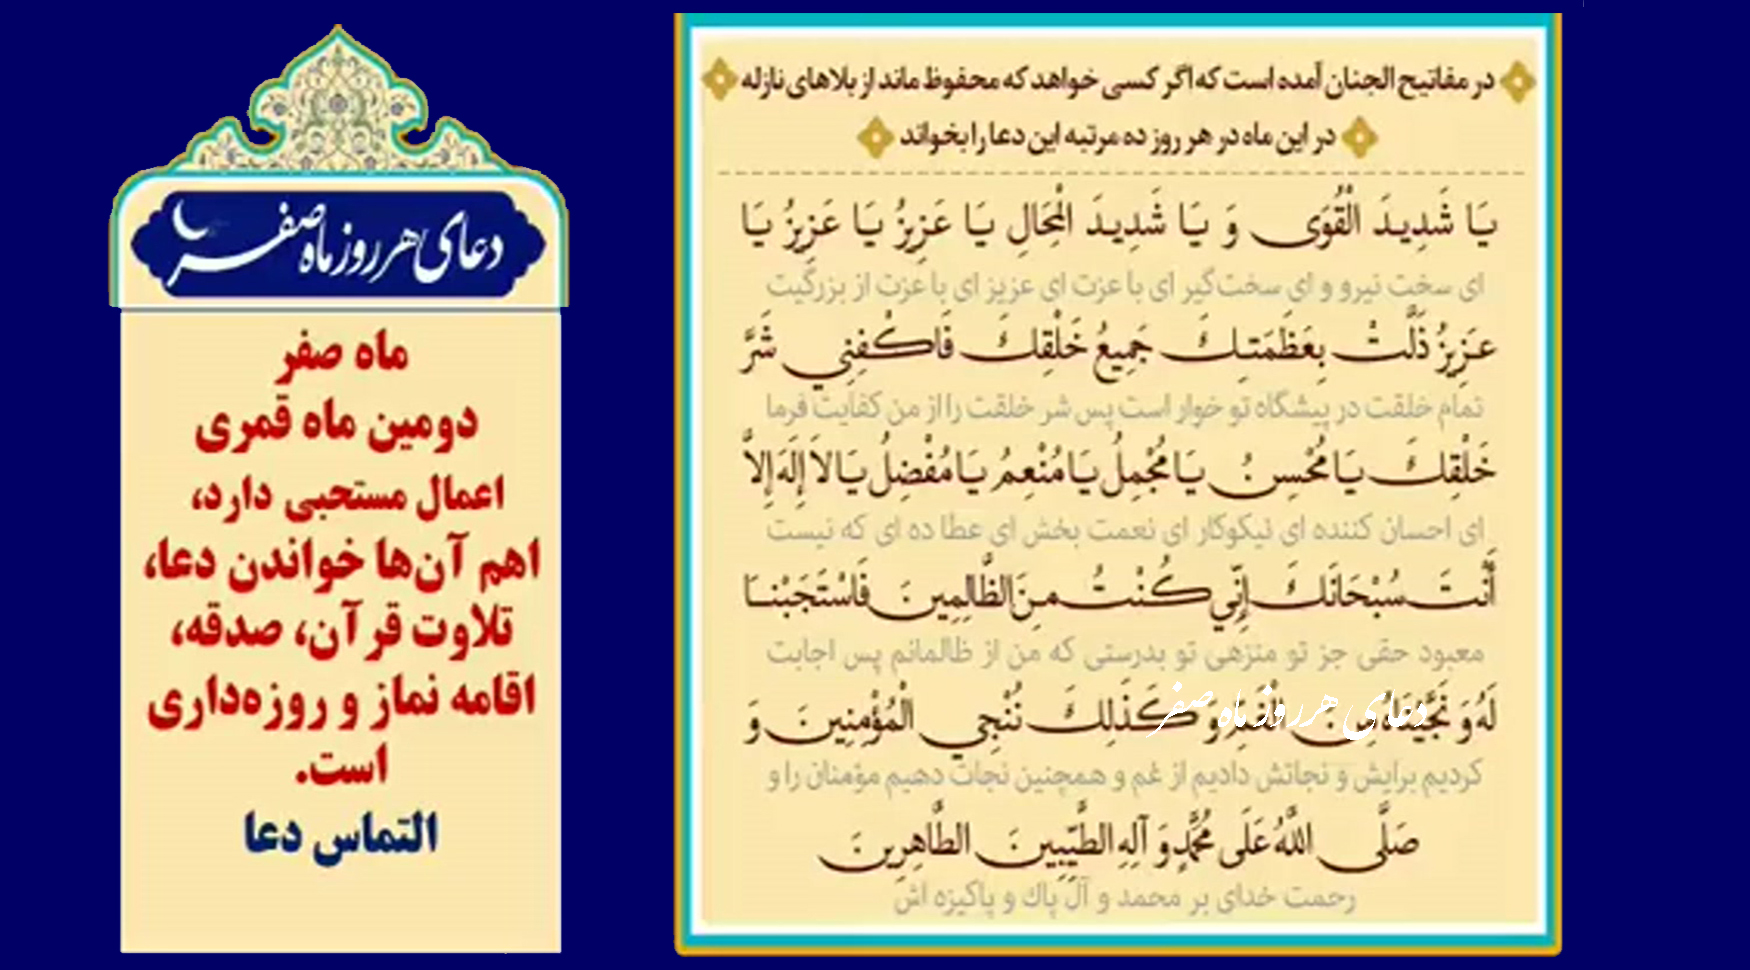 در مفاتیح الجنان آمده است که اگر کسی خواهد که محفوظ ماند از بلاهای نازله
در این ماه در هر روز ده مرتبه این دعا را بخواند
يَا شَدِيدَ الْقُوَى وَ يَا شَدِيدَ الْمِحَالِ يَا عَزِيزُ يَا عَزِيزُ يَا
ای سخت نیرو و ای سخت‌گیر ای با عزت ای عزیز ای با عزت از بزرگیت
عَزِيزُ ذَلَّتْ بِعَظَمَتِكَ جَمِيعُ خَلْقِكَ فَاكْفِنِي شَرَّ
تمام خلقت در پیشگاه تو خوار است پس شر خلقت را از من کفایت فرما
خَلْقِكَ يَا مُحْسِنُ يَا مُجْمِلُ يَا مُنْعِمُ يَا مُفْضِلُ يَا لاَ إِلَهَ إِلاَّ
ای احسان کننده ای نیکوکار ای نعمت بخش ای عطا ده ای که نیست
أَنْتَ سُبْحَانَكَ إِنِّي كُنْتُ مِنَ الظَّالِمِينَ فَاسْتَجَبْنَا
معبود حقی جز تو منزهی تو بدرستی که من از ظالمانم پس اجابت
لَهُ وَ نَجَّيْنَاهُ مِنَ الْغَمِّ وَ كَذَلِكَ نُنْجِي الْمُؤْمِنِينَ وَ
دعای هر روز ماه صفر
کردیم برایش و نجاتش دادیم از غم و همچنین نجات دهیم مؤمنان را و
صَلَّى اللَّهُ عَلَى مُحَمَّدٍ وَ آلِهِ الطَّيِّبِينَ الطَّاهِرِينَ
رحمت خدای بر محمد و آل پاك و پاکیزه اش
دعای هر روز ماه صفر
ماه صفر
دومین ماه قمری
اعمال مستحبی دارد،
اهم آن‌ها خواندن دعا،
تلاوت قرآن، صدقه،
اقامه نماز و روزه‌داری
است.
التماس دعا